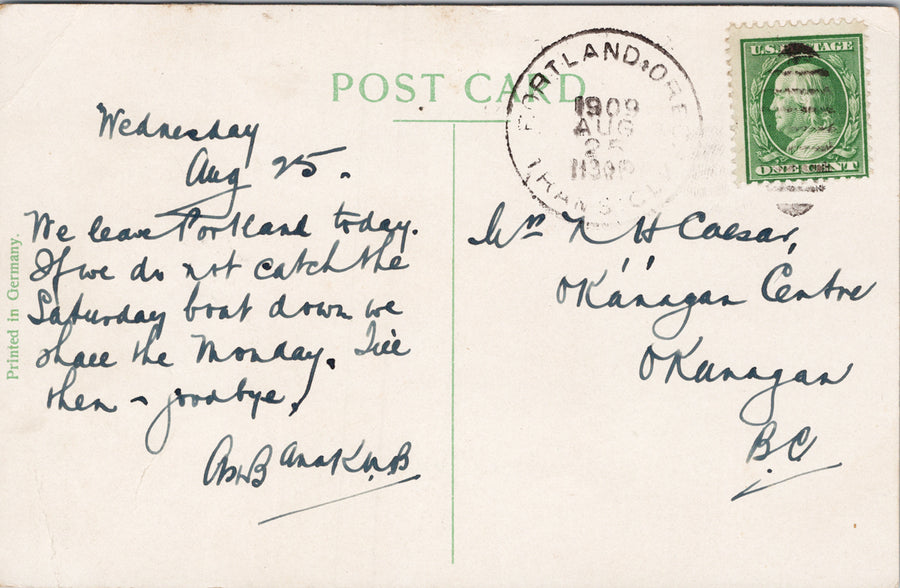 POST CARD
PORTLAND, ORE.
1909
AUG
25
1130P
TRANS. CL
U.S. POSTAGE
ONE CENT
Wednesday
Aug 25.
We leave Portland today.
If we do not catch the
Saturday boat down we
shall the Monday. Till
then - goodbye,
Mrs N H Caesar,
Okanagan Centre
Okanagan
BC
Printed in Germany.